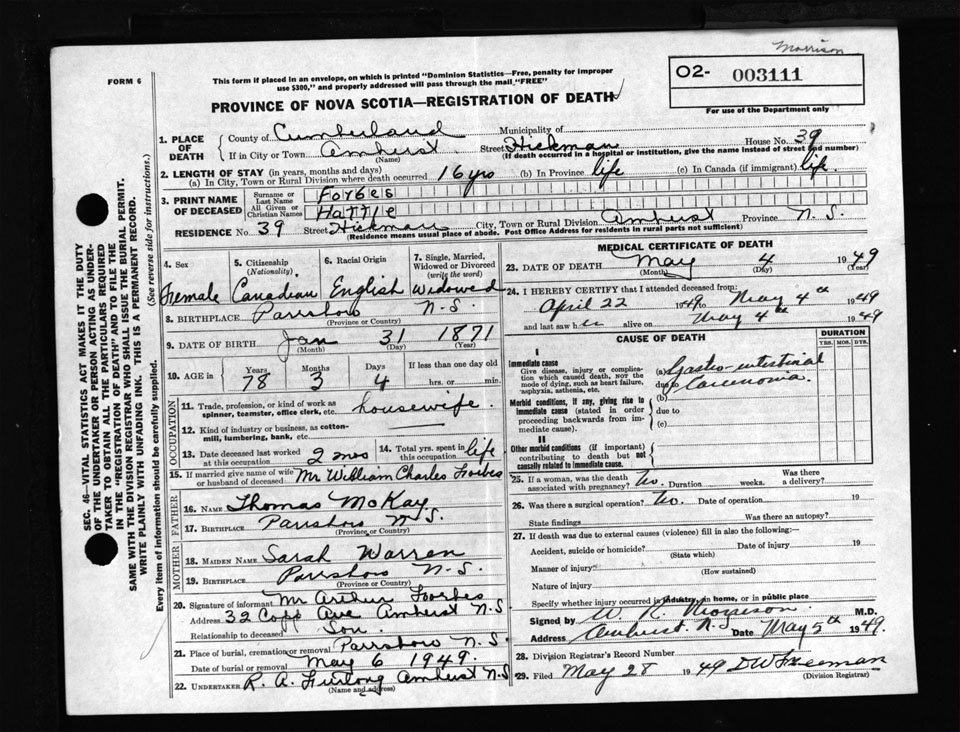 Morrison
FORM 6
This form if placed in an envelope, on which is printed "Dominion Statistics—Free, penalty for improper
use $300," and properly addressed will pass through the mail "FREE"
O2- 003111
For use of the Department only
PROVINCE OF NOVA SCOTIA—REGISTRATION OF DEATH
1. PLACE OF DEATH
County of Cumberland Municipality of
If in City or Town Amherst Street Hickman House No. 39
(Name) (If death occurred in a hospital or institution, give the name instead of street and number)
2. LENGTH OF STAY (in years, months and days)
(a) In City, Town or Rural Division where death occurred 16 yrs (b) In Province life (c) In Canada (if immigrant) life
3. PRINT NAME OF DECEASED
Surname or Last Name Forbes
All Given or Christian Names Hattie
RESIDENCE No. 39 Street Hickman City, Town or Rural Division Amherst Province N. S.
(Residence means usual place of abode. Post Office Address for residents in rural parts not sufficient)
4. Sex Female
5. Citizenship (Nationality) Canadian
6. Racial Origin English
7. Single, Married, Widowed or Divorced (write the word) Widowed
8. BIRTHPLACE Parrsboro N.S.
(Province or Country)
9. DATE OF BIRTH Jan 31 1871
(Month) (Day) (Year)
10. AGE in Years Months Days If less than one day old
78 3 4 hrs. or min.
OCCUPATION
11. Trade, profession or kind of work as spinner, teamster, office clerk, etc. housewife
12. Kind of industry or business, as cotton-mill, lumbering, bank, etc.
13. Date deceased last worked at this occupation 2 mos
14. Total yrs. spent in this occupation life
15. If married give name of wife or husband of deceased Mr William Charles Forbes
FATHER
16. NAME Thomas McKay
17. BIRTHPLACE Parrsboro N S
(Province or Country)
MOTHER
18. MAIDEN NAME Sarah Warren
19. BIRTHPLACE Parrsboro N. S.
(Province or Country)
20. Signature of informant Mr Arthur Forbes
Address 32 Copp Ave Amherst N S
Relationship to deceased Son
21. Place of burial, cremation or removal Parrsboro N. S.
Date of burial or removal May 6 1949
22. UNDERTAKER R. A. Furlong Amherst N S
(Name and address)
MEDICAL CERTIFICATE OF DEATH
23. DATE OF DEATH May 4 1949
(Month) (Day) (Year)
24. I HEREBY CERTIFY that I attended deceased from:
April 22 1949 to May 4th 1949
and last saw her alive on May 4th 1949
CAUSE OF DEATH
DURATION
YRS. MOS. DYS.
I
Immediate cause
Give disease, injury or complication which caused death, not the mode of dying, such as heart failure, asphyxia, asthenia, etc.
(a) Gastro-intestinal
due to Carcinoma
(b)
Morbid conditions, if any, giving rise to immediate cause (stated in order proceeding backwards from immediate cause).
due to
(c)
II
Other morbid conditions (if important) contributing to death but not causally related to immediate cause.
25. If a woman, was the death associated with pregnancy? No. Duration weeks. Was there a delivery?
26. Was there a surgical operation? No. Date of operation 19
State findings Was there an autopsy?
27. If death was due to external causes (violence) fill in also the following:—
Accident, suicide or homicide? Date of injury 19
(State which)
Manner of injury
(How sustained)
Nature of injury
Specify whether injury occurred in industry, in home, or in public place
Signed by M.D.
Address Amherst. N.S Date May 5th 1949.
28. Division Registrar's Record Number
29. Filed May 28 1949 D W Freeman
(Division Registrar)
SEC. 46—VITAL STATISTICS ACT MAKES IT THE DUTY
OF THE UNDERTAKER OR PERSON ACTING AS UNDER-
TAKER TO OBTAIN ALL THE PARTICULARS REQUIRED
IN THE "REGISTRATION OF DEATH" AND TO FILE THE
SAME WITH THE DIVISION REGISTRAR WHO SHALL ISSUE THE BURIAL PERMIT.
WRITE PLAINLY WITH UNFADING INK. THIS IS A PERMANENT RECORD.
Every item of information should be carefully supplied. (See reverse side for instructions.)